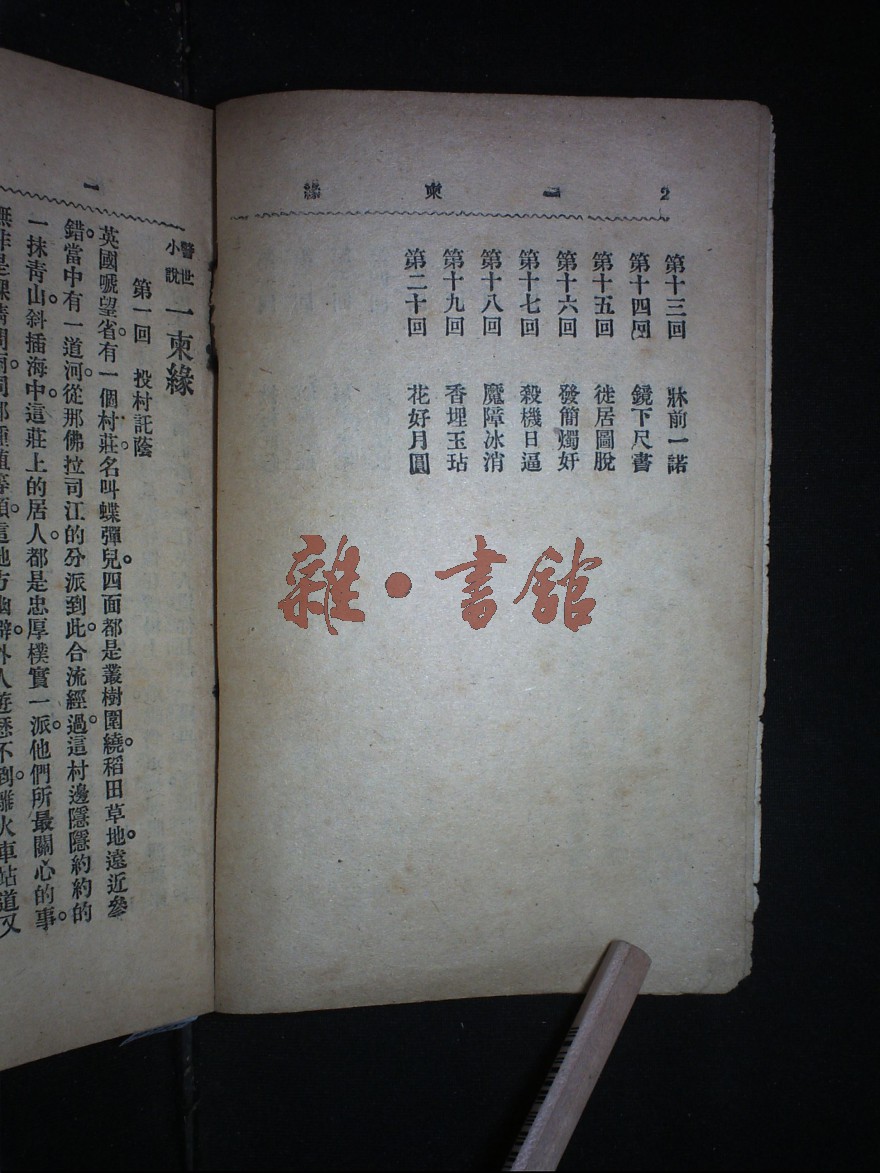 2 一柬緣
第十三回 牀前一諾
第十四回 鏡下尺書
第十五回 徙居圖脫
第十六回 發簡燭奸
第十七回 殺機日逼
第十八回 魔障冰消
第十九回 香埋玉玷
第二十回 花好月圓
雜·書館
一
警世小說 一柬緣
第一回 投村託蔭
英國嘅望省有一個村莊。名叫蝶彈兒。四面都是叢樹圍繞。稻田草地。遠近參
錯。當中有一道河。從那佛拉司江的分派到此合流。經過這村邊。隱隱約約的
一抹青山。斜插海中。這莊上的居人。都是忠厚樸實一派。他們所最關心的事。